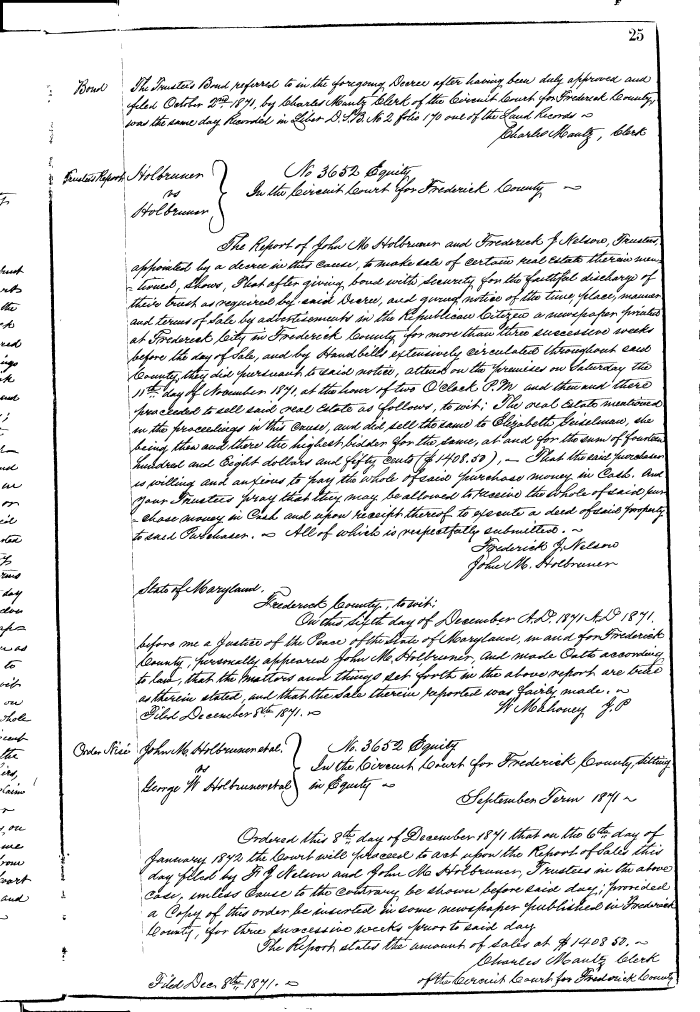 25
Bond The Trustee's Bond referred to in the foregoing Decree after having been duly approved and
filed October 2nd 1871, by Charles Mantz Clerk of the Circuit Court for Frederick County,
was the same day Recorded in Liber D.S.B. No 2 folio 170 one of the Land Records ~
Charles Mantz, Clerk
Trustees Report Holbruner
vs
Holbruner
No 3652 Equity
In the Circuit Court for Frederick County ~
The Report of John M Holbruner and Frederick J Nelson, Trustees,
appointed by a decree in this cause, to make sale of certain real estate therein men-
-tioned, Shows, That after giving bond with security for the faithful discharge of
their trust as required by said Decree, and giving notice of the time, place, manner
and terms of sale by advertisements in the Republican Citizen a newspaper printed
at Frederick City in Frederick County, for more than three successive weeks
before the day of Sale, and by Handbills extensively circulated throughout said
County, they did pursuant to said notice, attend on the premises on Saturday the
11th day of November 1871, at the hour of two O'Clock P.M and then and there
proceeded to sell said real Estate as follows, to wit; The real Estate mentioned
in the proceedings in this cause, and did sell the same to Elizabeth Geiselman, she
being then and there the highest bidder for the same, at and for the sum of fourteen
hundred and Eight dollars and fifty cents ($1408.50), — That the said purchaser
is willing and anxious to pay the whole of said purchase money in Cash. And
your Trustees pray that they may be allowed to receive the whole of said pur-
-chase money in Cash and upon receipt thereof to execute a deed of said property
to said Purchaser. ~ All of which is respectfully submitted. ~
Frederick J. Nelson
John M. Holbruner
State of Maryland.
Frederick County, to wit;
On this sixth day of December A.D. 1871 A.D. 1871.
before me a Justice of the Peace of the state of Maryland, in and for Frederick
County, personally appeared John M. Holbruner, and made Oath according
to law, that the matters and things set forth in the above report are true
as therein stated, and that the sale therein reported was fairly made. ~
Filed December 8th 1871. ~ W Mahoney J.P
Order Nisi John M. Holbruner et al.
vs
George W Holbruner et al
No. 3652 Equity
In the Circuit Court for Frederick County, sitting
in Equity ~
September Term 1871 ~
Ordered this 8th day of December 1871 that on the 6th day of
January 1872 the Court will proceed to act upon the Report of Sales this
day filed by F. J Nelson and John M Holbruner, Trustees in the above
case, unless Cause to the contrary be shown before said day; provided
a Copy of this order be inserted in some newspaper published in Frederick
County, for three successive weeks prior to said day
The Report states the amount of sales at $1408.50. ~
Charles Mantz Clerk
Filed Dec. 8th 1871. ~ of the Circuit Court for Frederick County